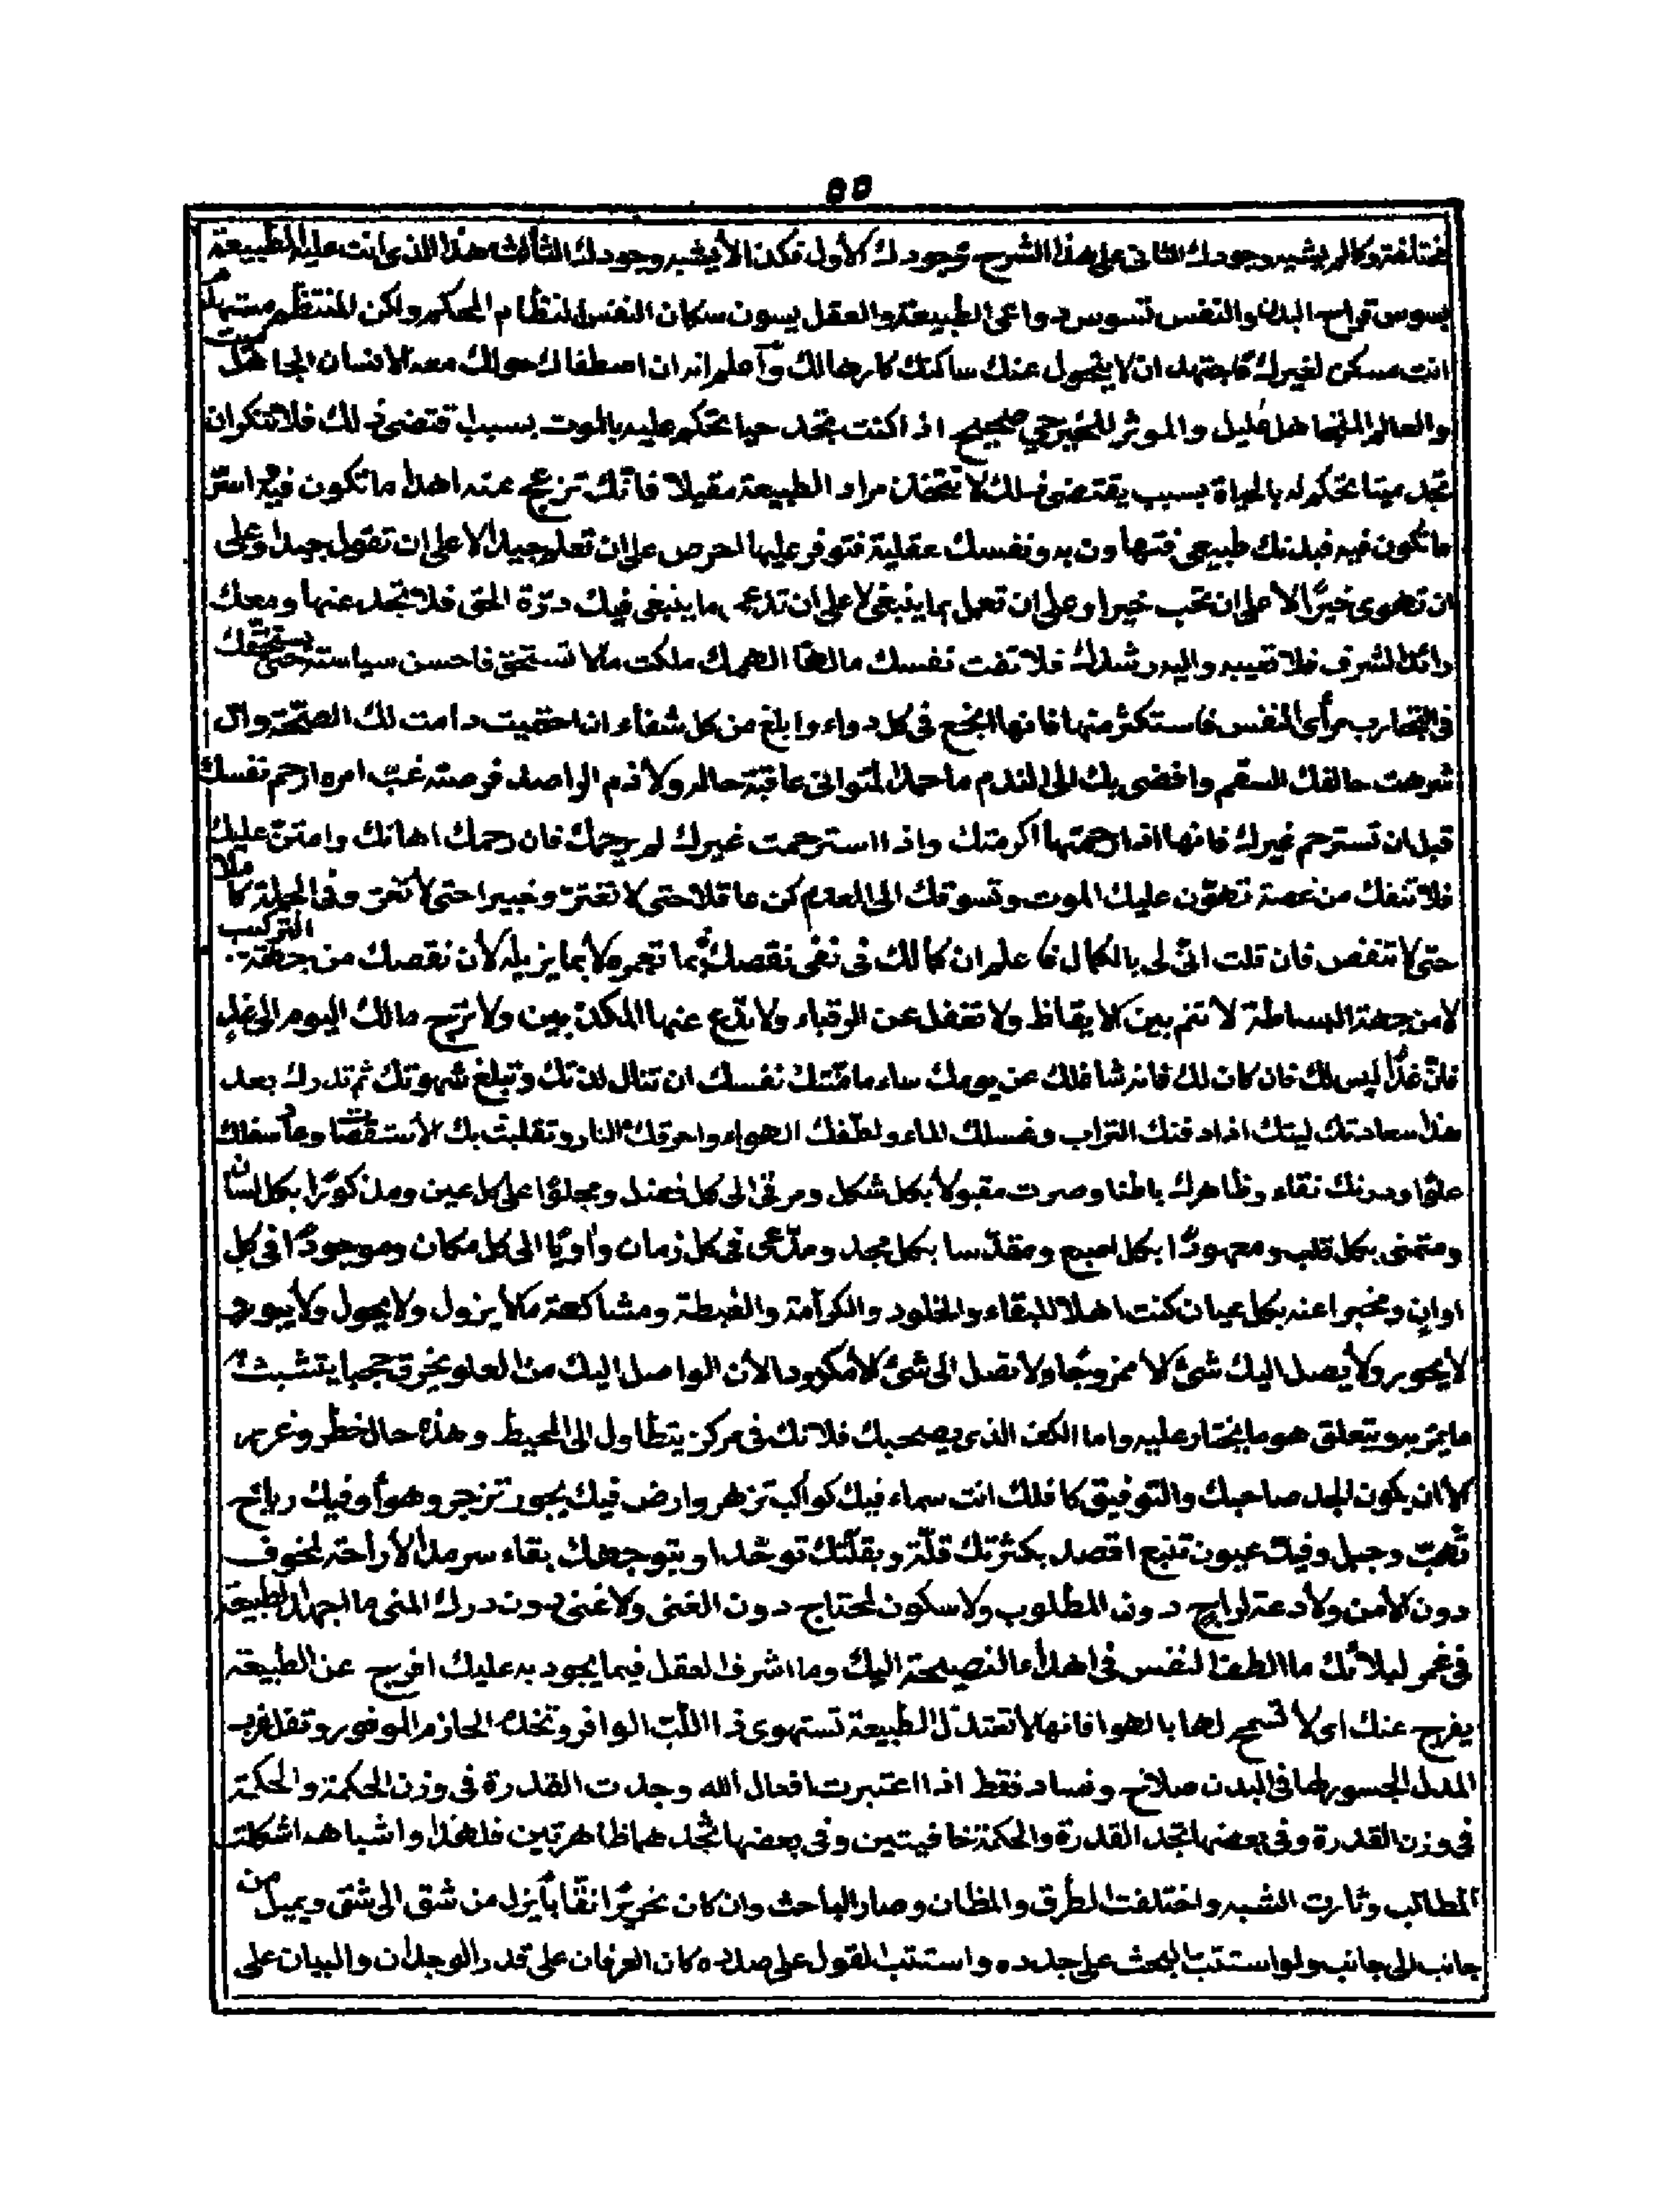 ٥٥
مختلفة وكما لم يشبه وجودك الثانى على هذا الشرح وجودك الأول فكذا لا يشبه وجودك الثالث هذا الذى انت عليه الطبيعة
يسوس قواسم البدن والنفس تسوس دواعى الطبيعة والعقل يسوس سكان النفس لنظام المحكم ولكن المنتظم مستهلك
انت مسكن لغيرك فاجتهد ان لا يتحول عنك ساكنك كارها لك وأعلم انه ان اصطفاك حولك معه الانسان الجاهل ميت
والعالم المتجاهل عليل والموثر للخير حي صحيح اذا كنت تجد حيا تحكم عليه بالموت بسبب اقتضى ذلك فلا تنكر ان
تجد ميتا تحكم له بالحياة بسبب يقتضى ذلك لا تتخذن مراد الطبيعة مقيلا فانّك تزعج عنه اهدا ما تكون فيه اسرّ
ما تكون فيه فبدنك طبيعى فتهاون به ونفسك عقلية فتوفر عليها احرص على ان تعلم جيدا لا على ان تقول جيدا وعلى
ان تهوى خيرًا لا على ان تحب خيرا وعلى ان تعمل بما ينبغى لا على ان تدعى ما ينبغى فيك درّة الحق فلا تجد عنها ومعك
رائد الشرف فلا تعيبه واليه رشدك فلا تفت نفسك مالها الهمك ملكت ما لا تستحق فاحسن سياسته حتى يستحقك
فى التجارب مرأى النفس فاستكثر منها فانها انجع فى كل دواء وابلغ من كل شفاء ان احتميت دامت لك الصحّة وان
شرهت حالفك السقم وافضى بك الى الندم ما حمد المتوانى عاقبة حاله ولا ذم الواصد فرصته غبّ امره ارحم نفسك
قبل ان تسترحم غيرك فانها اذا رحمتها اكرمتك واذا استرحمت غيرك لم يرحمك فان رحمك اهانك وامتنّ عليك
فلا تنفك من غصة تهوّن عليك الموت وتسوقك الى العدم كن عاقلا حتى لا تغترّ وخبيرا حتى لا تغر وفى الجملة كاملا
حتى لا تنقص فان قلت انّى لى بالكمال فاعلم ان كمالك فى نفى نقصك بما تعمره لا بما يزيله لأن نقصك من جهة التركيب
لا من جهة البساطة لا تنم بين الايقاظ ولا تغفل عن الرقباء ولا تدّع عنها المكذبين ولا ترج مالك اليوم الى غدٍ
فانّ غدًا ليس لك فان كان لك فانه شاغلك عن يومك ساء ما منّتك نفسك ان تنال لذتك وتبلغ شهوتك ثم تدرك بعد
هذا سعادتك ليتك اذا دفنك التراب وغسلك الماء ولطّفك الهواء واحرقك النار وتقلبت بك الأستقصات وعاد سفلك
علوّا ودرنك نقاء وظاهرك باطنا وصرت مقبولا بكل شكل ومرقى الى كل فضل ومجلوّا على كل عين ومذكورًا بكل لسان
ومتمنى بكل قلب ومعهودًا بكل اصبع ومقدّسا بكل مجد ومدّعى فى كل زمان وأويًا الى كل مكان وموجودًا فى كل
اوان ومخبرا عنه بكل عيان كنت اهلا للبقاء والخلود والكرامة والغبطة ومشاكهة ما لا يزول ولا يحول ولا يبور و
لا يحور ولا يصل اليك شئ الا ممزوجًا ولا تصل الى شئ الا مكدودا لأن الواصل اليك من العلو يخرق حجبا يتشبث به
ما يمرّ به ويتعلق هو ما يختار عليه واما الكد الذى يصحبك فلانك فى مركز يتطاول الى المحيط وهذه حال خطر وغرر
الا ان يكون الجد صاحبك والتوفيق كافلك انت سماء فيك كواكب تزهر وارض فيك بحور تزجر وهوأ وفيك رياح
تهبّ وجبل وفيك عيون تنبع اقصد بكثرتك قلّة وبقلّتك توحّدا وبتوحدك بقاء سرمدا لا راحة لخوف
دون الأمن ولا دعة لراج دون المطلوب ولا سكون لمحتاج دون الغنى ولا غنى دون درك المنى ما اجهل الطبيعة
فى غمرى بلائك ما الطف النفس فى اهداء النصيحة اليك وما اشرف العقل فيما يجود به عليك افرج عن الطبيعة
يفرج عنك اى لا تسمح لها بالهوا فانها لا تعتدل الطبيعة تستهوى ذا اللّب الوافر وتخدع الحازم الموفور وتفل غرب
المدل الجسور لها فى البدن صلاح وفساد فقط اذا اعتبرت افعال الله وجدت القدرة فى وزن الحكمة والحكمة
فى وزن القدرة وفى بعضها تجد القدرة والحكمة خافيتين وفى بعضها تجدهما ظاهرتين فلهذا واشباهه اشكلت
المطالب وثارت الشبه واختلفت الطرق والمظان وصار الباحث وان كان نحريرًا نقّابا يزل من شق الى شق ويميل من
جانب الى جانب ولو استتب البحث على جدده واستتب القول على صدده كان العرفان على قدر الوجدان والبيان على